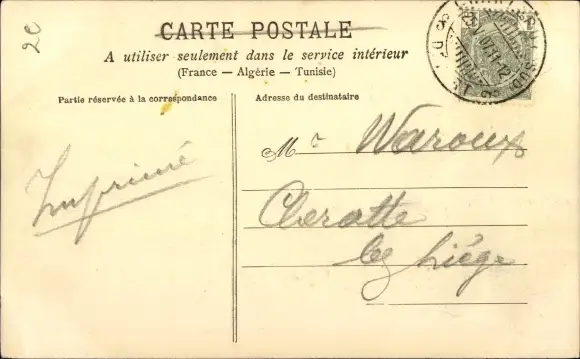 2€
CARTE POSTALE
A utiliser seulement dans le service intérieur
(France — Algérie — Tunisie)
Partie réservée à la correspondance
Adresse du destinataire
Imprimé
M r Waroux
Cheratte
lez Liége